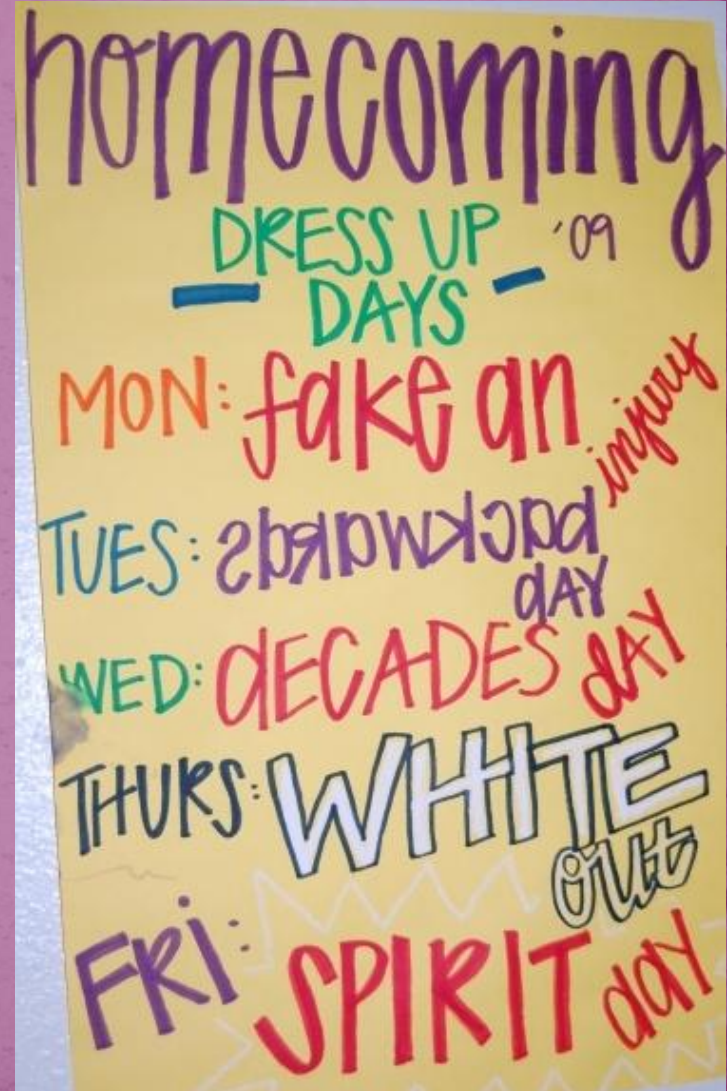 homecoming
DRESS UP '09
DAYS
MON: fake an injury
TUES: backwards
dAY
WED: dECADES dAY
THURS: WHITE
out
FRi: SPIRIT day